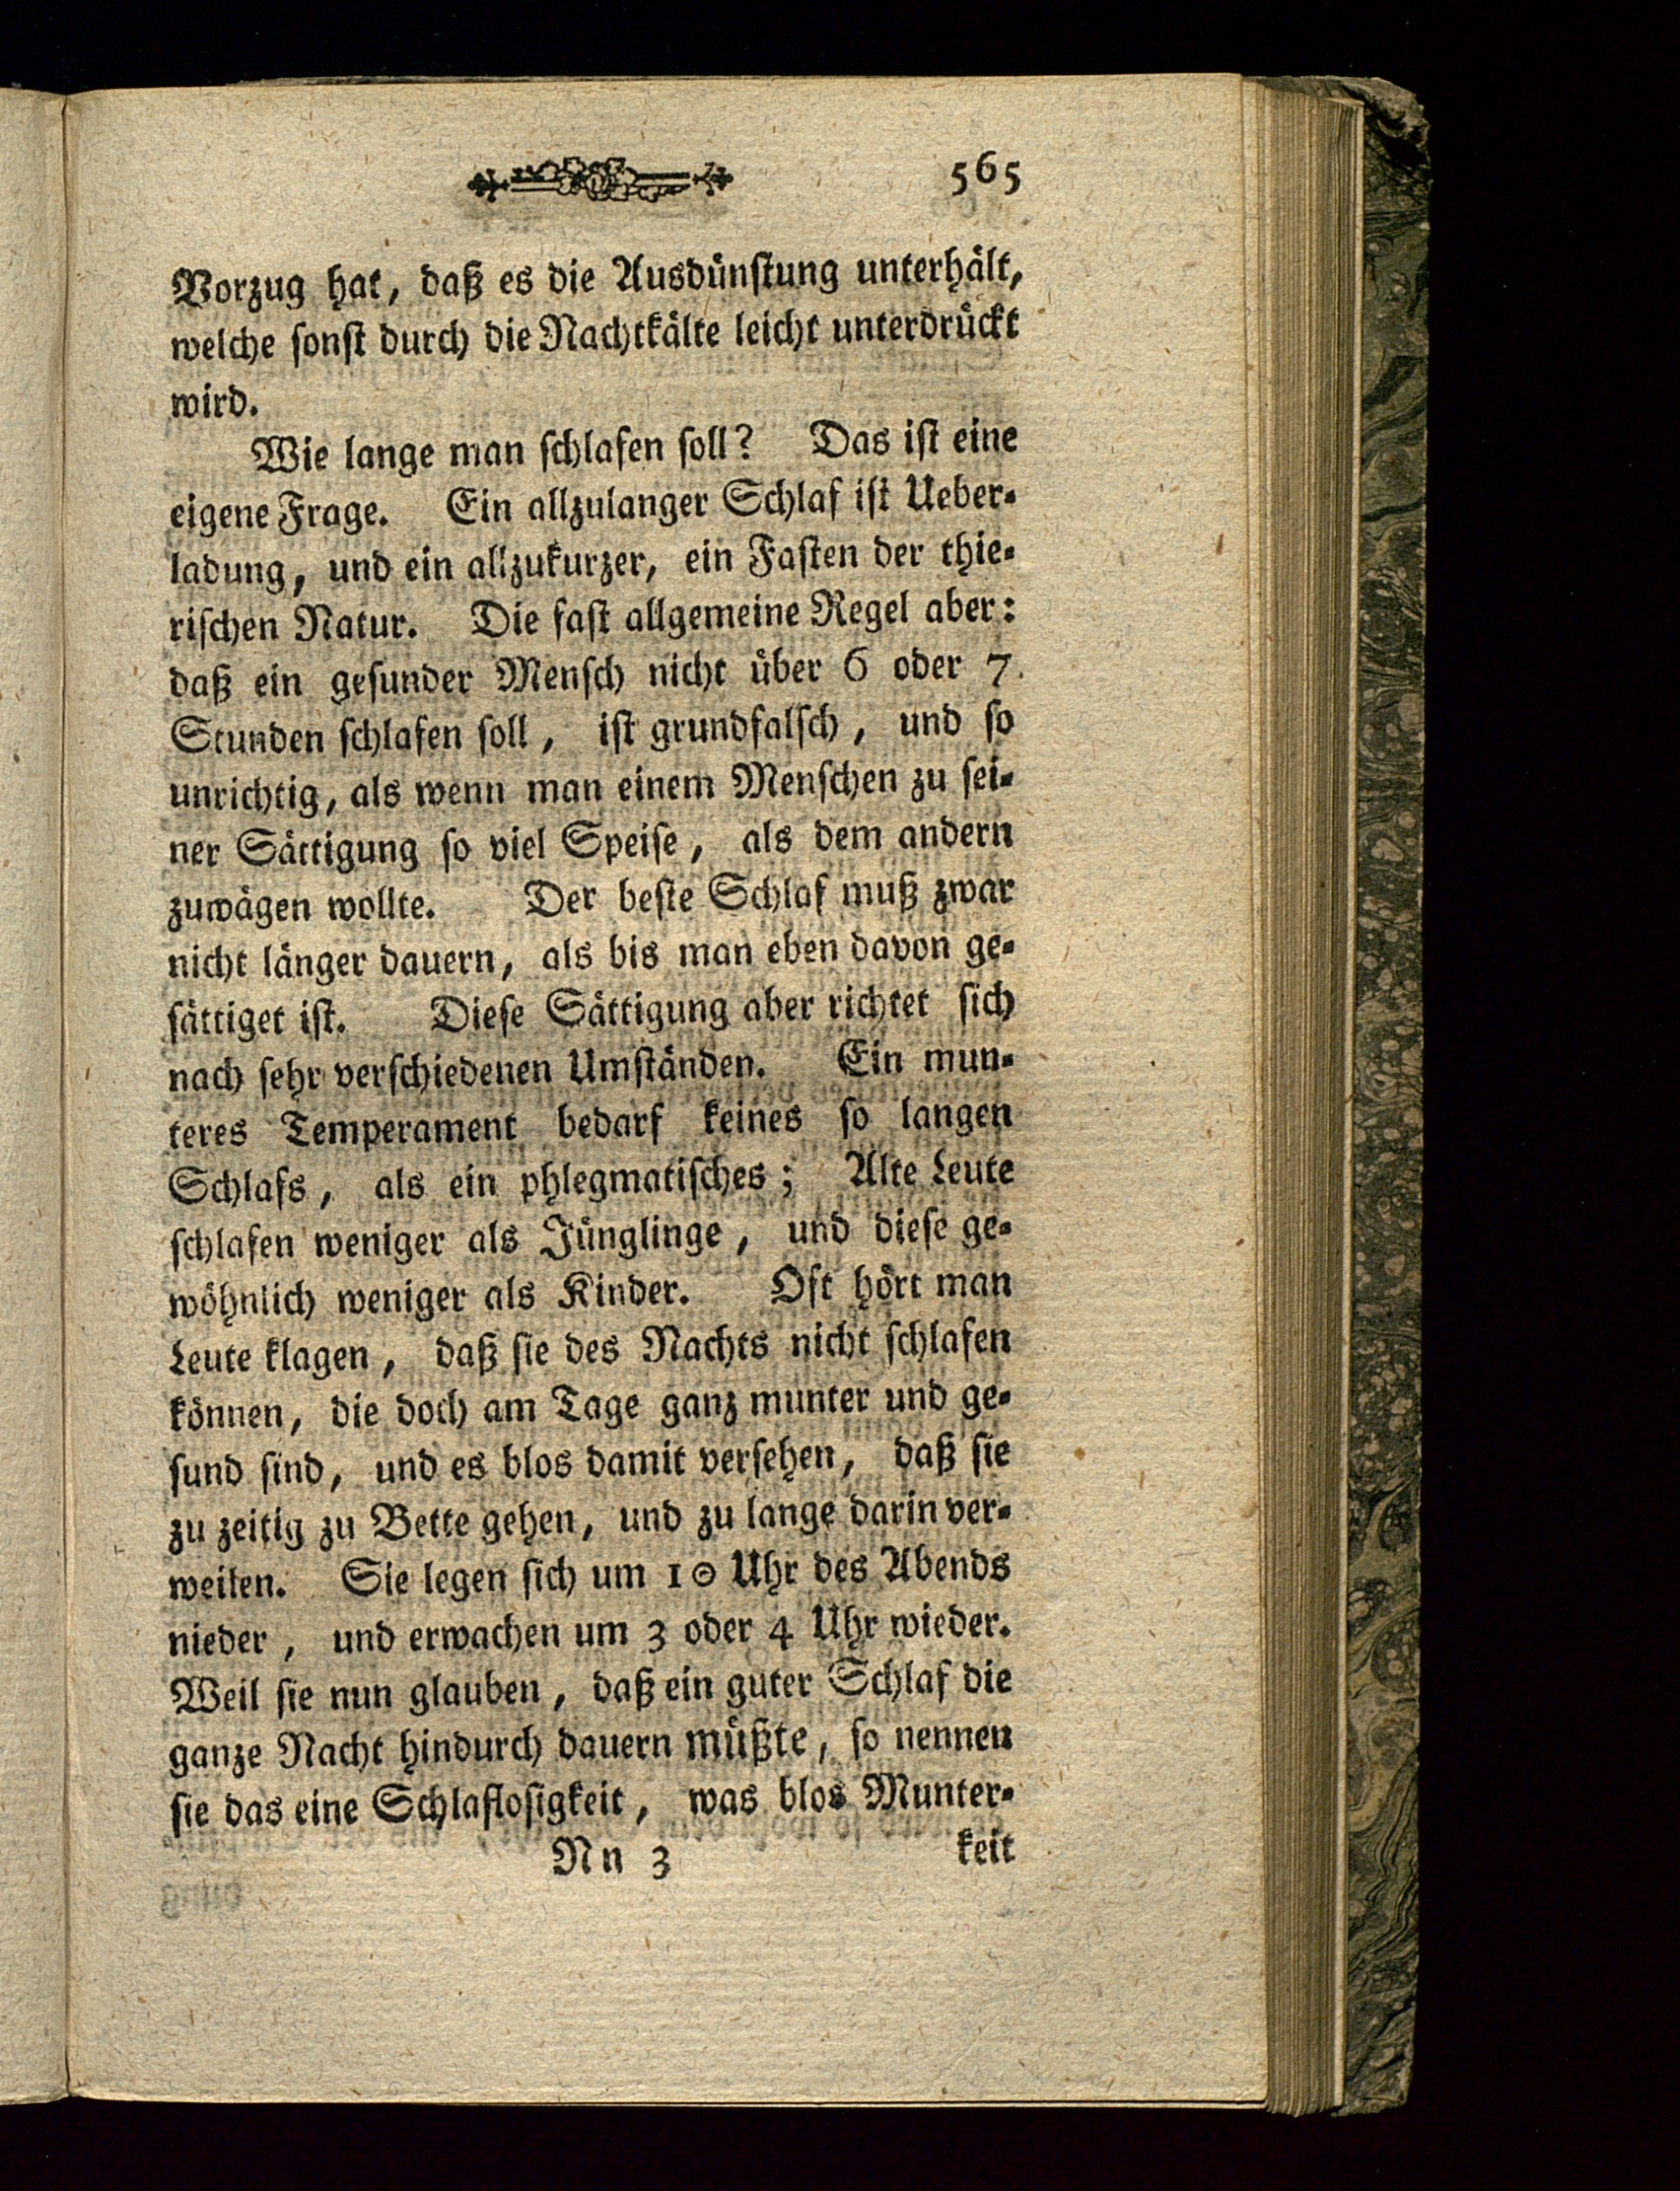 565
Vorzug hat, daß es die Ausdünstung unterhält,
welche sonst durch die Nachtkälte leicht unterdrückt
wird.
Wie lange man schlafen soll? Das ist eine
eigene Frage. Ein allzulanger Schlaf ist Ueber-
ladung, und ein allzukurzer, ein Fasten der thie-
rischen Natur. Die fast allgemeine Regel aber:
daß ein gesunder Mensch nicht über 6 oder 7
Stunden schlafen soll, ist grundfalsch, und so
unrichtig, als wenn man einem Menschen zu sei-
ner Sättigung so viel Speise, als dem andern
zuwägen wollte. Der beste Schlaf muß zwar
nicht länger dauern, als bis man eben davon ge-
sättiget ist. Diese Sättigung aber richtet sich
nach sehr verschiedenen Umständen. Ein mun-
teres Temperament bedarf keines so langen
Schlafs, als ein phlegmatisches; Alte Leute
schlafen weniger als Jünglinge, und diese ge-
wöhnlich weniger als Kinder. Oft hört man
Leute klagen, daß sie des Nachts nicht schlafen
können, die doch am Tage ganz munter und ge-
sund sind, und es blos damit versehen, daß sie
zu zeitig zu Bette gehen, und zu lange darin ver-
weilen. Sie legen sich um 10 Uhr des Abends
nieder, und erwachen um 3 oder 4 Uhr wieder.
Weil sie nun glauben, daß ein guter Schlaf die
ganze Nacht hindurch dauern müßte, so nennen
sie das eine Schlaflosigkeit, was blos Munter-
Nn 3 keit